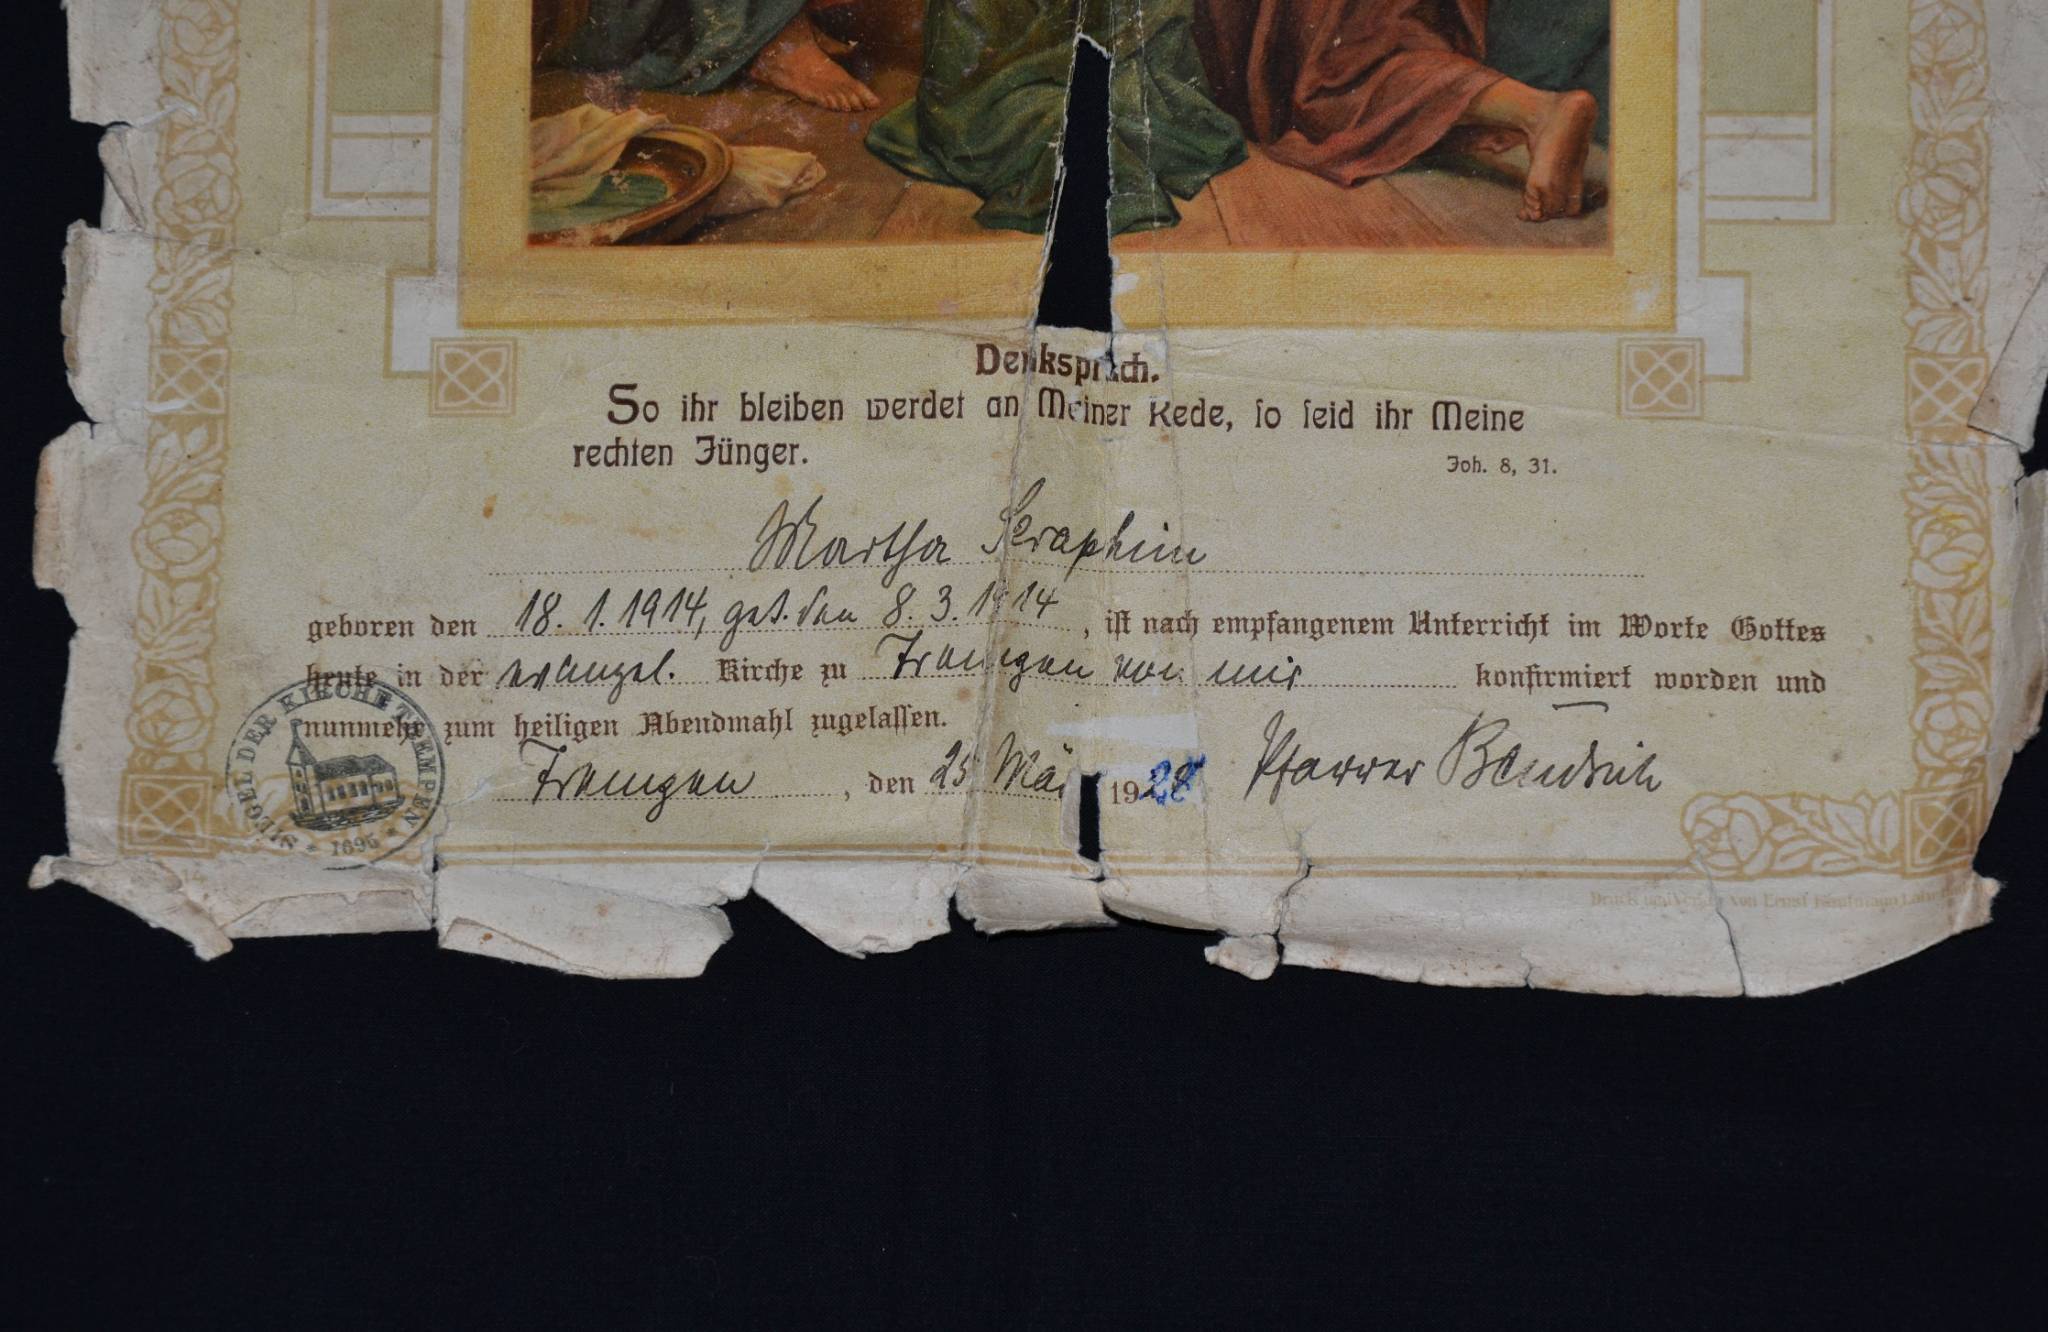 Denkspruch.
So ihr bleiben werdet an Meiner Rede, so seid ihr Meine
rechten Jünger.
Joh. 8, 31.
Martha Seraphim
geboren den 18. 1. 1914, get. den 8. 3. 1914, ist nach empfangenem Unterricht im Worte Gottes
heute in der evangel. Kirche zu von mir konfirmiert worden und
nunmehr zum heiligen Abendmahl zugelassen.
, den 25 Mär 1928 Pfarrer
SIEGEL DER KIRCHE TREMPEN
* 1695 *
14
Druck und Verlag von Ernst Kaufmann